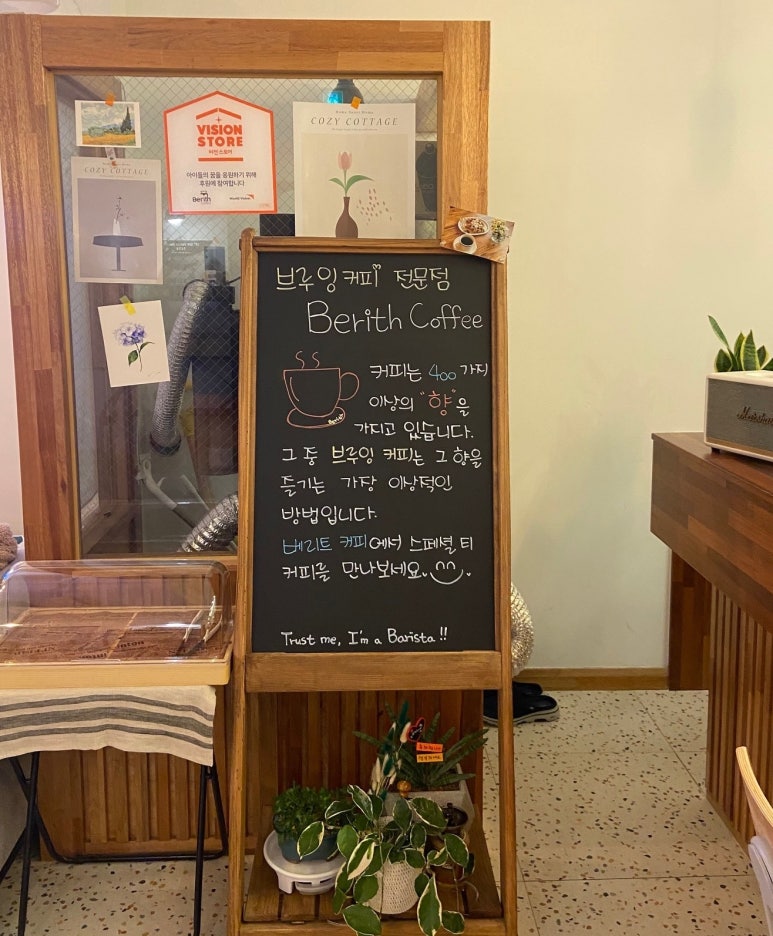 COZY COTTAGE
VISION
STORE
비전스토어
아이들의 꿈을 응원하기 위해
후원에 참여합니다
Berith
World Vision
COZY COTTAGE
브루잉 커피 전문점
Berith Coffee
커피는 400 가지
이상의 "향"을
가지고 있습니다.
그 중 브루잉 커피는 그 향을
즐기는 가장 이상적인
방법입니다.
베리트 커피에서 스페셜 티
커피를 만나보세요.
Trust me, I'm a Barista!!
Marshall